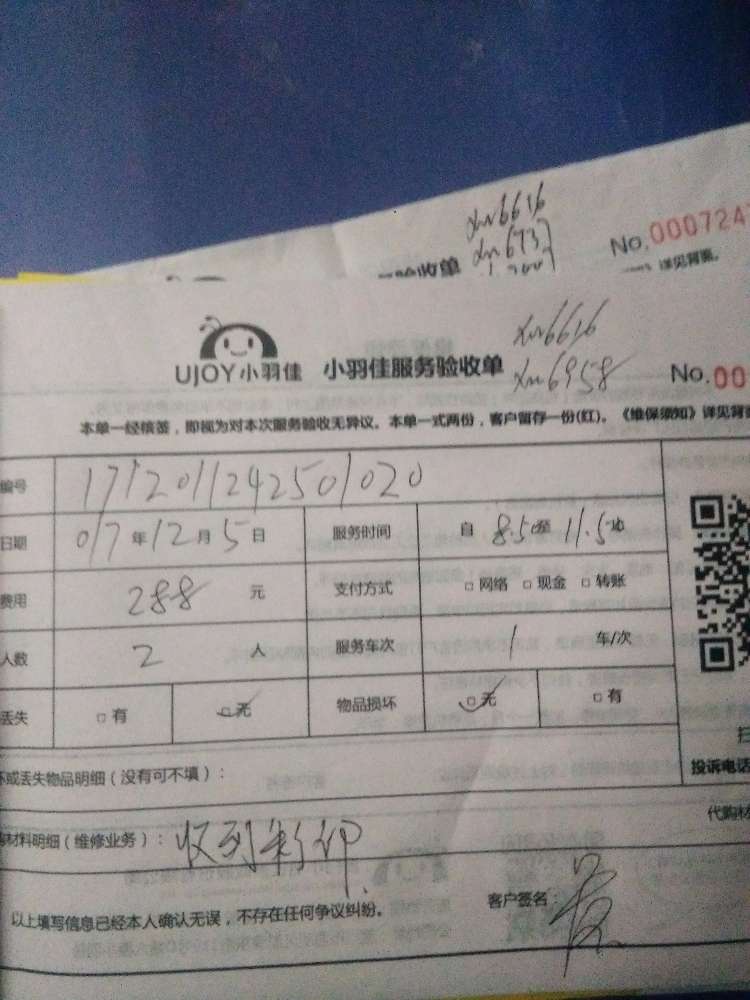 xn6616
xn6737
验收单
No.000724
详见背面。
xn6616
UJOY小羽佳 小羽佳服务验收单
xn6958
No.00
本单一经核签，即视为对本次服务验收无异议。本单一式两份，客户留存一份(红)。《维保须知》详见背面
编号 1712011242501020
日期 017年12月5日 服务时间 自8.50至11.50
费用 288 元 支付方式 □网络 □现金 □转账
人数 2 人 服务车次 1 车/次
丢失 □有 □无 物品损坏 □无 □有
投诉电话
坏或丢失物品明细（没有可不填）：
代购材
材料明细（维修业务）： 收到
以上填写信息已经本人确认无误，不存在任何争议纠纷。 客户签名：